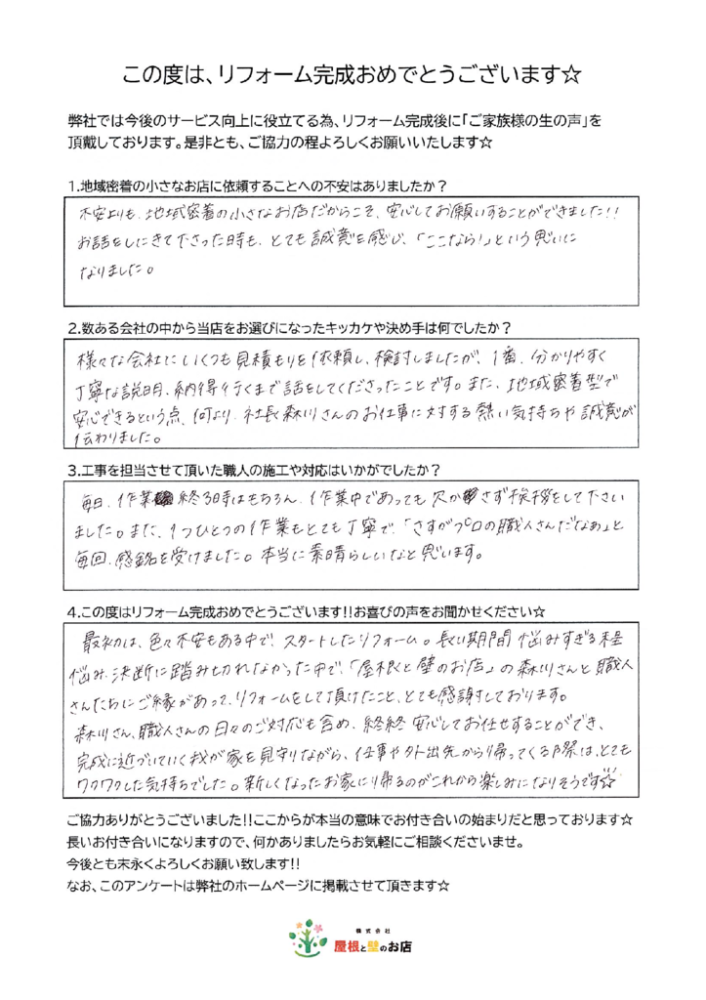 この度は、リフォーム完成おめでとうございます☆
弊社では今後のサービス向上に役立てる為、リフォーム完成後に「ご家族様の生の声」を
頂戴しております。是非とも、ご協力の程よろしくお願いいたします☆
1.地域密着の小さなお店に依頼することへの不安はありましたか？
不安よりも、地域密着の小さなお店だからこそ、安心してお願いすることができました!!
お話をしにきて下さった時も、とても誠意を感じ、「ここなら！」という思いに
なりました。
2.数ある会社の中から当店をお選びになったキッカケや決め手は何でしたか？
様々な会社にいくつも見積もりを依頼し、検討しましたが、1番、分かりやすく
丁寧な説明、納得行くまで話をしてくださったことです。また、地域密着型で
安心できるという点、何より、社長森川さんのお仕事に対する熱い気持ちや誠意が
伝わりました。
3.工事を担当させて頂いた職人の施工や対応はいかがでしたか？
毎日、作業終る時はもちろん、作業中であっても欠かさず挨拶をして下さい
ました。また、1つひとつの作業もとても丁寧で、「さすがプロの職人さんだなぁ」と
毎回、感銘を受けました。本当に素晴らしいなと思います。
4.この度はリフォーム完成おめでとうございます!!お喜びの声をお聞かせください☆
最初は、色々不安もある中で、スタートしたリフォーム。長い期間悩みすぎる程
悩み、決断に踏み切れなかった中で、「屋根と壁のお店」の森川さんと職人
さんたちにご縁があって、リフォームをして頂けたこと、とても感謝しております。
森川さん、職人さんの日々のご対応も含め、終終安心してお任せすることができ、
完成に近づいていく我が家を見守りながら、仕事や外出先から帰ってくる際は、とても
ワクワクした気持ちでした。新しくなったお家に帰るのがこれから楽しみになりそうです☆
ご協力ありがとうございました!!ここからが本当の意味でお付き合いの始まりだと思っております☆
長いお付き合いになりますので、何かありましたらお気軽にご相談くださいませ。
今後とも末永くよろしくお願い致します!!
なお、このアンケートは弊社のホームページに掲載させて頂きます☆
株式会社
屋根と壁のお店